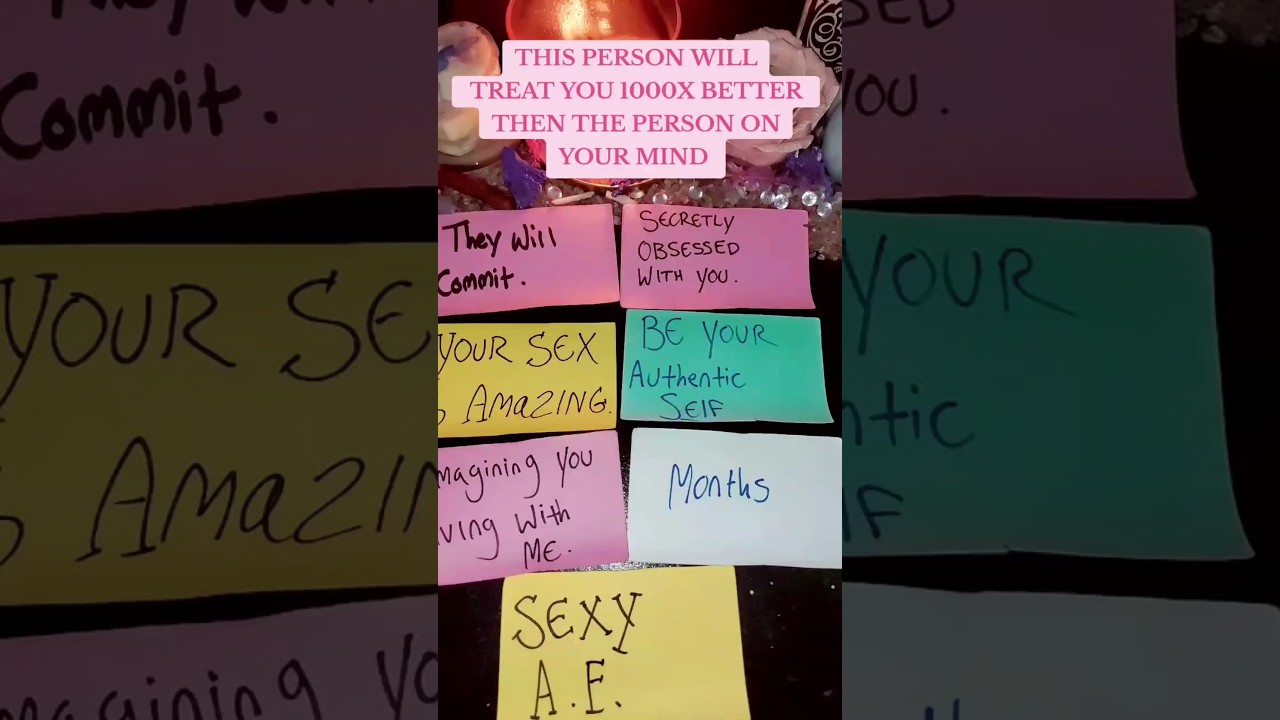 THIS PERSON WILL
TREAT YOU 1000X BETTER
THEN THE PERSON ON
YOUR MIND
They Will
Commit.
SECRETLY
OBSESSED
WITH YOU.
YOUR SEX
AMAZING.
BE YOUR
Authentic
SElF
magining You
ving With
ME.
Months
SEXY
A.F.